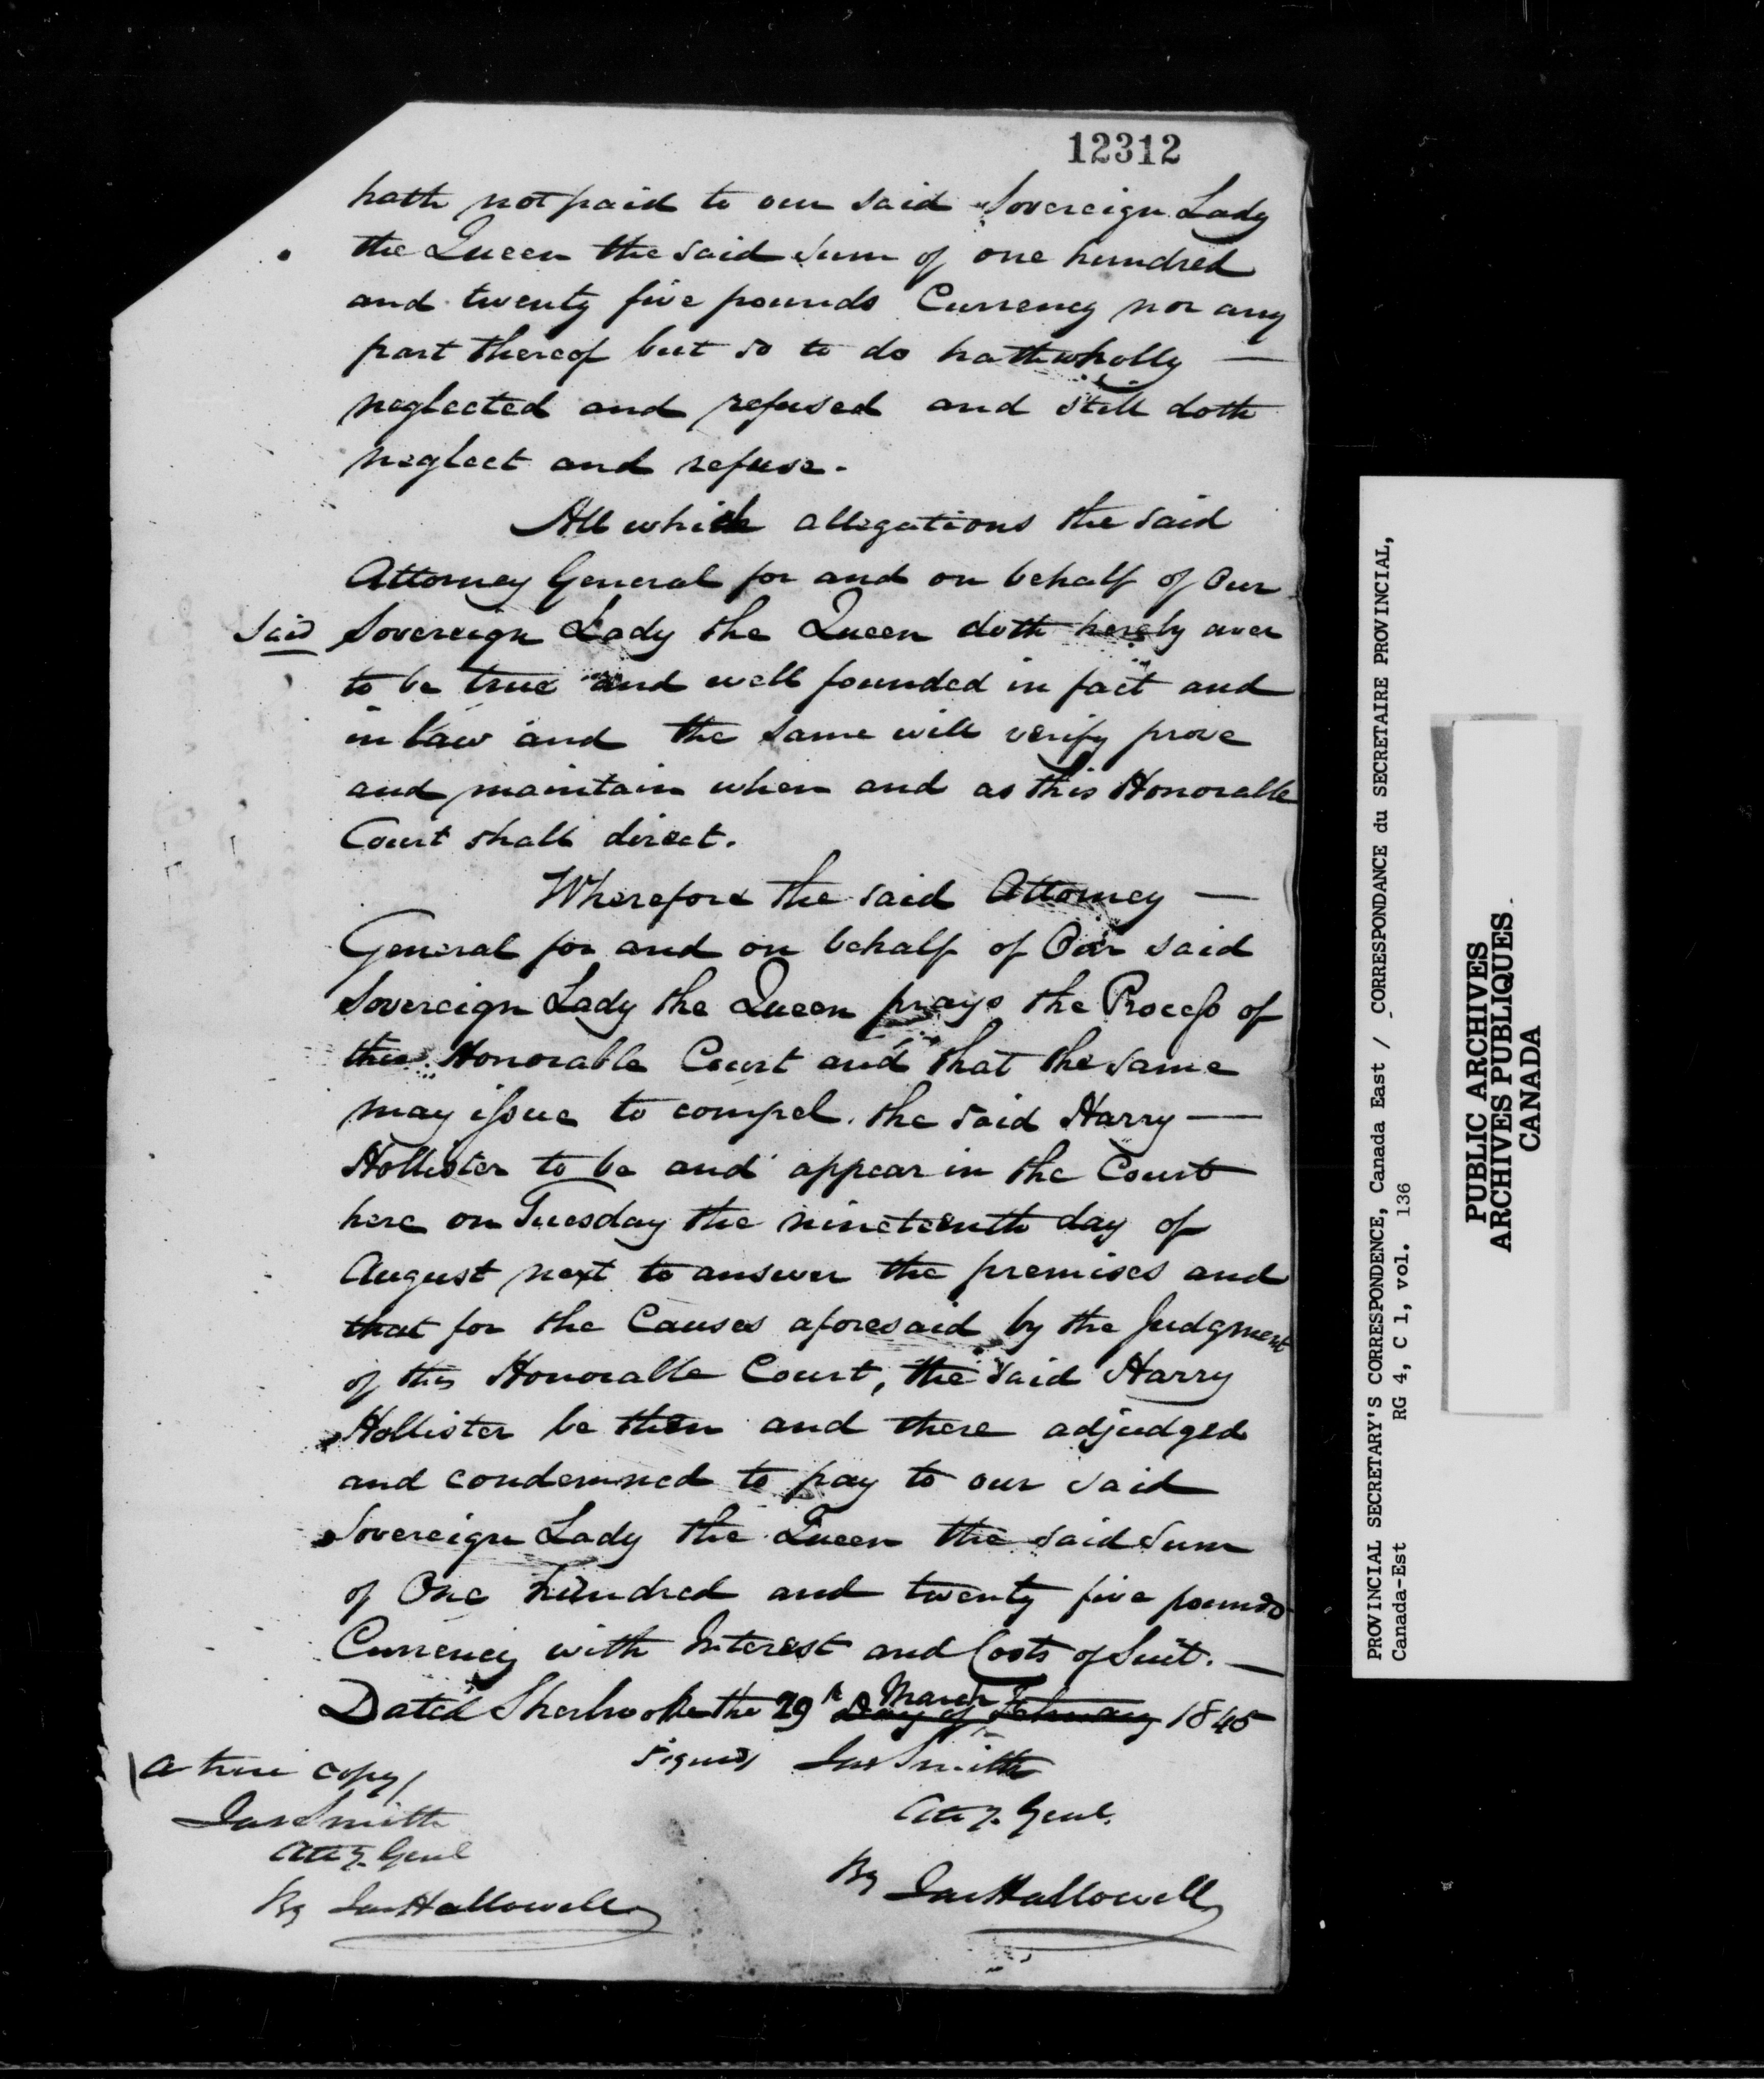 12312
hath not paid to our said Sovereign Lady
the Queen the said Sum of one hundred
and twenty five pounds Currency nor any
part thereof but so to do hath wholly —
neglected and refused and still doth
neglect and refuse.
All which allegations the said
Attorney General for and on behalf of Our
Said Sovereign Lady the Queen doth hereby aver
to be true and well founded in fact and
in law and the same will verify prove
and maintain when and as this Honorable
Court shall direct.
Wherefore the said Attorney —
General for and on behalf of Our said
Sovereign Lady the Queen prays the Process of
this Honorable Court and that the same
may issue to compel the said Harry —
Hollister to be and appear in the Court
here on Tuesday the nineteenth day of
August next to answer the premises and
that for the Causes aforesaid by the Judgment
of this Honorable Court, the said Harry
Hollister be then and there adjudged
and condemned to pay to our said
Sovereign Lady the Queen the said Sum
of One hundred and twenty five pounds
Currency with Interest and Costs of Suit. —
March
Dated Sherbrooke the 29th Day of February 1845
Signed Jas Smith
Atty. Genl.
By Jas Hallowell
(a true copy)
Jas Smith
Atty. Genl
By Jas Hallowell
PROVINCIAL SECRETARY'S CORRESPONDENCE, Canada East / CORRESPONDANCE du SECRETAIRE PROVINCIAL,
Canada-Est RG 4, C 1, vol. 136
PUBLIC ARCHIVES
ARCHIVES PUBLIQUES
CANADA